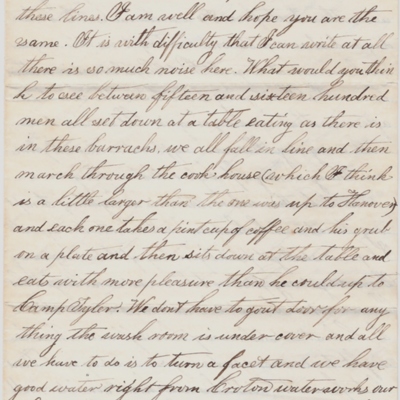 these lines. I am well and hope you are the
same. It is with difficulty that I can write at all
there is so much noise here. What would you thin
k to see between fifteen and sixteen hundred
men all set down at a table eating as there is
in these barrachs, we all fall in line and then
march through the cook house (which I think
is a little larger than the one was up to Hanover)
and each one takes a pint cup of coffee and his grub
on a plate and then sits down at the table and
eats with more pleasure than he could up to
Camp Tyler. We dont have to go out door for any
thing the wash room is under cover and all
we have to do is to turn a facet and we have
good water right from Croton water works our